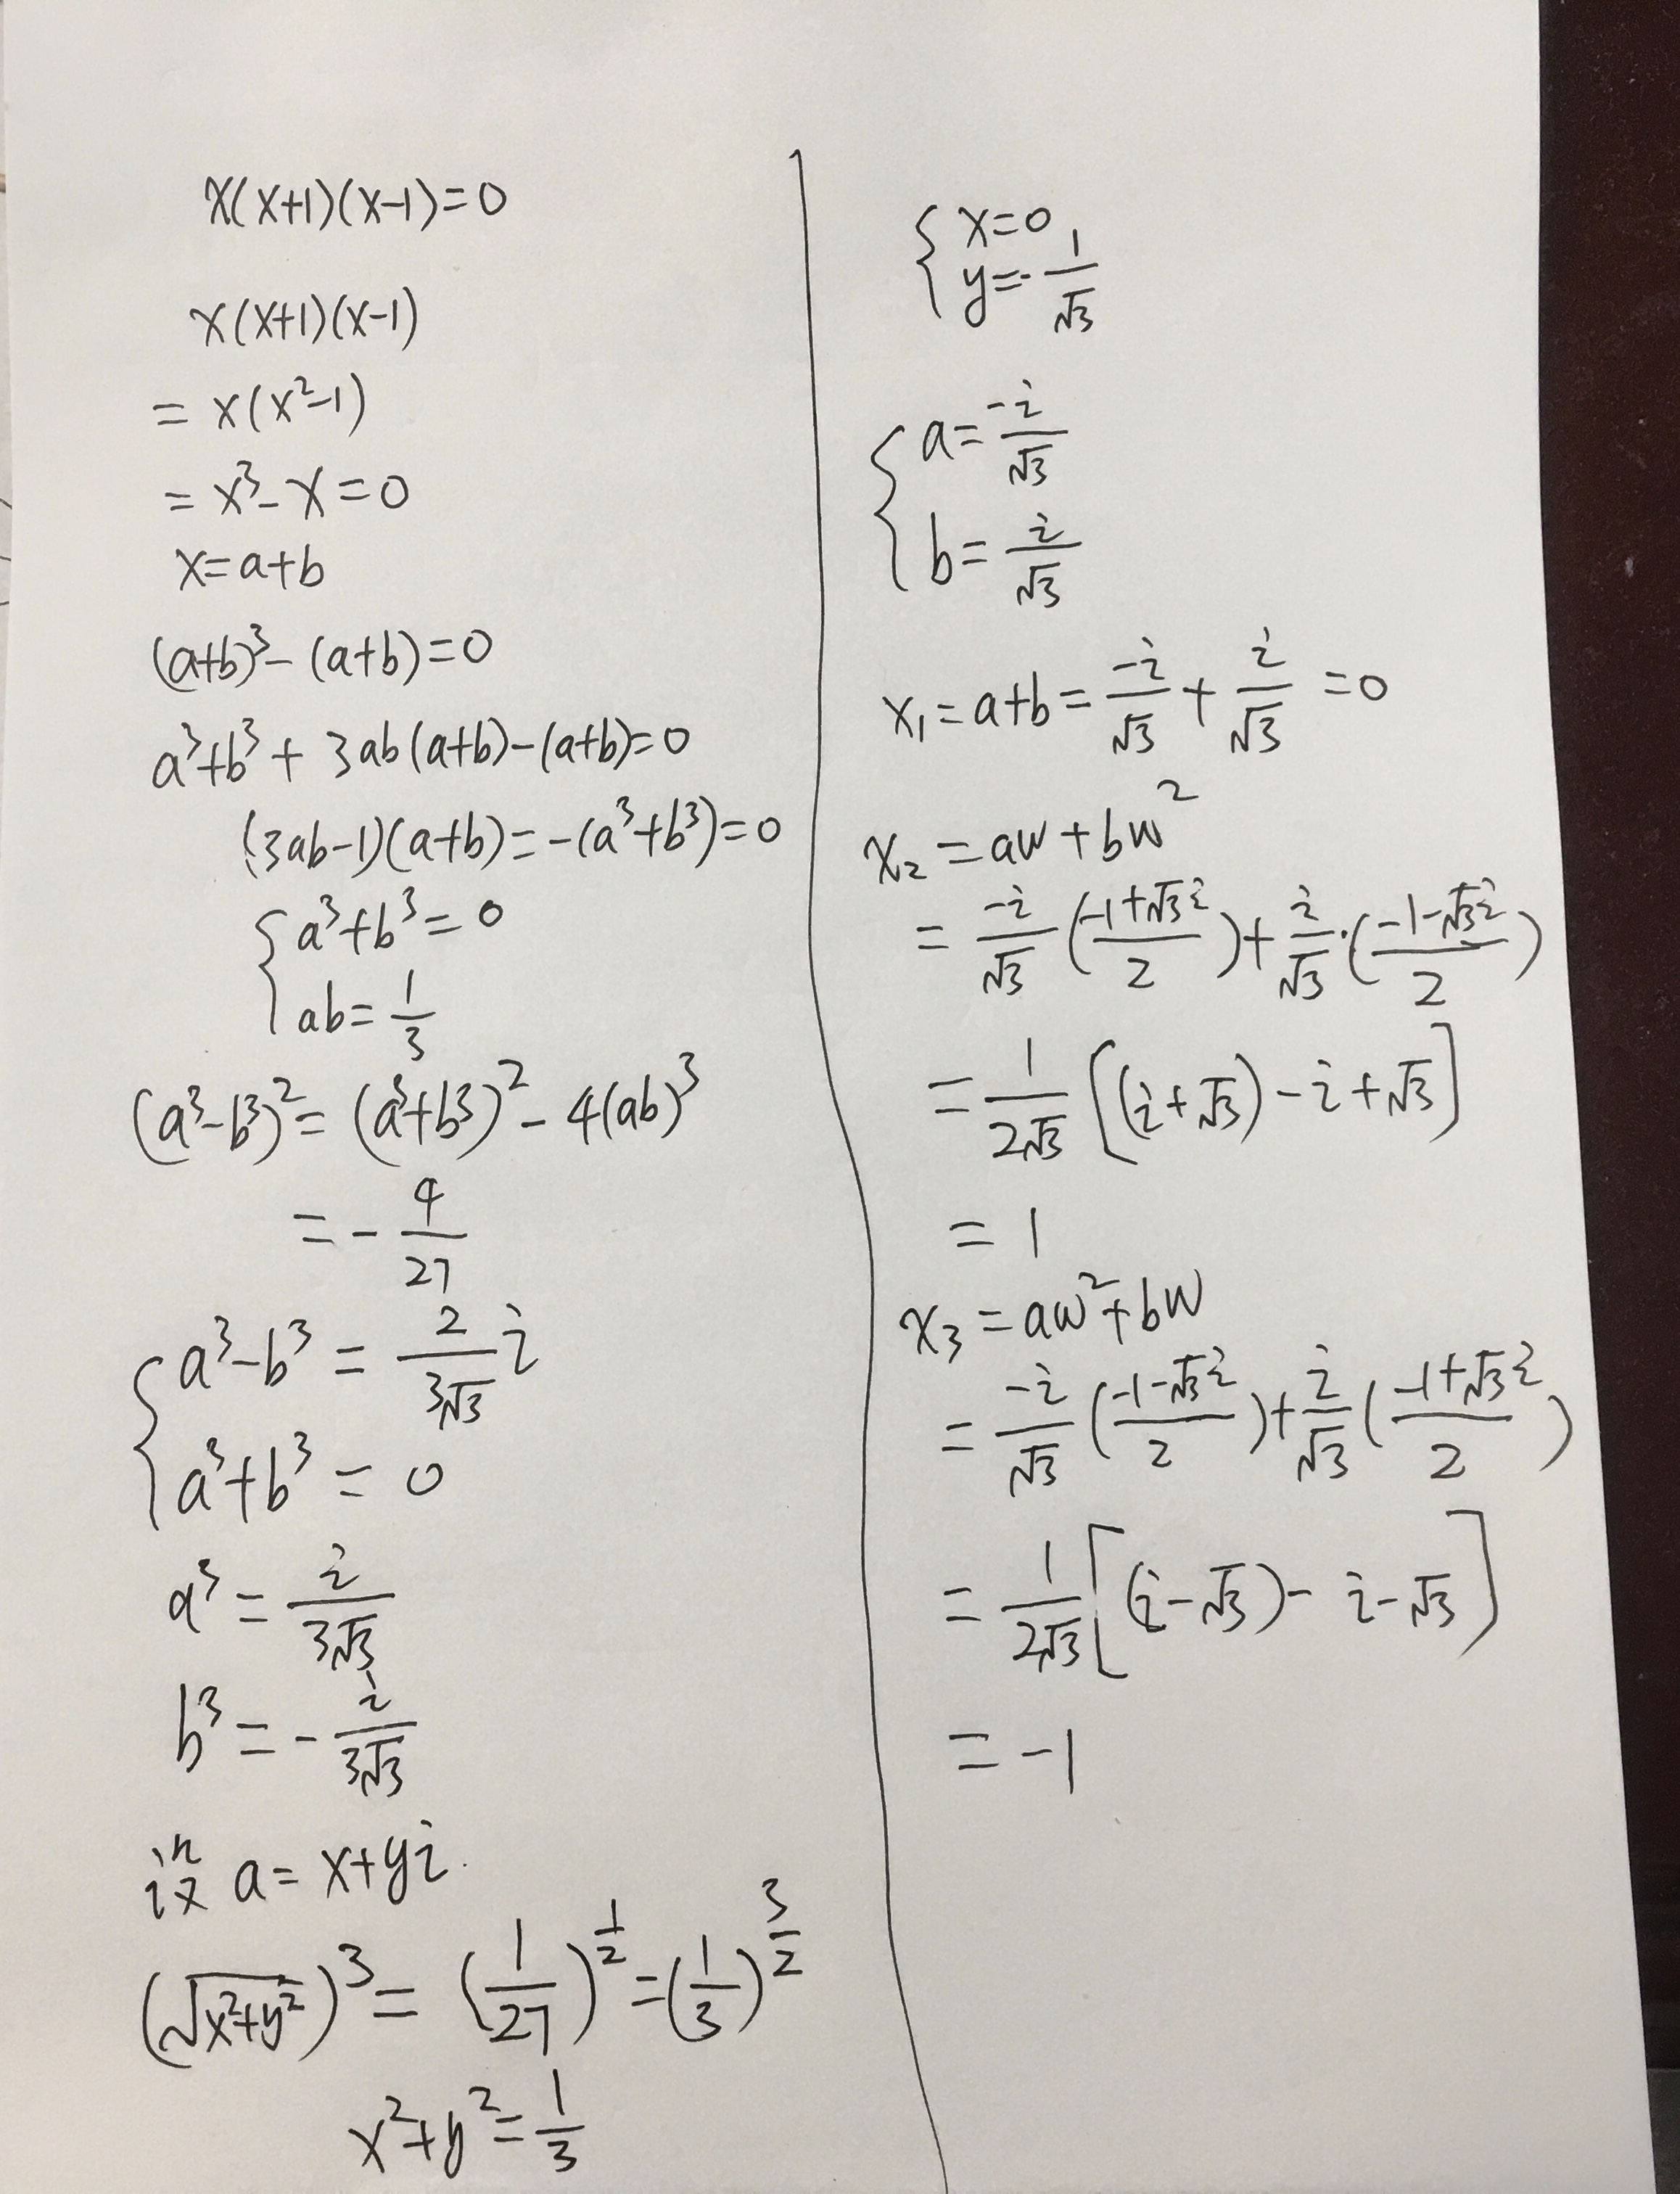 x(x+1)(x-1)=0
x(x+1)(x-1)
= x(x²-1)
= x³-x=0
x=a+b
(a+b)³-(a+b)=0
a³+b³+3ab(a+b)-(a+b)=0
(3ab-1)(a+b)=-(a³+b³)=0
{ a³+b³=0
ab=1/3
(a³-b³)²=(a³+b³)²-4(ab)³
=-4/27
{ a³-b³=2/(3√3) i
a³+b³=0
a³=i/(3√3)
b³=-i/(3√3)
设 a=x+yi.
(√(x²+y²))³=(1/27)^(1/2)=(1/3)^(3/2)
x²+y²=1/3
{ x=0
y=-1/√3
{ a=-i/√3
b=i/√3
x₁=a+b=-i/√3+i/√3=0
x₂=aw+bw²
=-i/√3((-1+√3i)/2)+i/√3·((-1-√3i)/2)
=1/(2√3)[(i+√3)-i+√3]
=1
x₃=aw²+bw
=-i/√3((-1-√3i)/2)+i/√3((-1+√3i)/2)
=1/(2√3)[(i-√3)-i-√3]
=-1